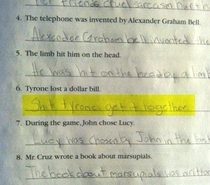 4. The telephone was invented by Alexander Graham Bell.
Alexander Graham Bell invented the
5. The limb hit him on the head.
He was hit on the head by a limb
6. Tyrone lost a dollar bill.
Shit Tyrone, get it together
7. During the game, John chose Lucy.
Lucy was chosen by John in the
8. Mr. Cruz wrote a book about marsupials.
The book about marsupials was written